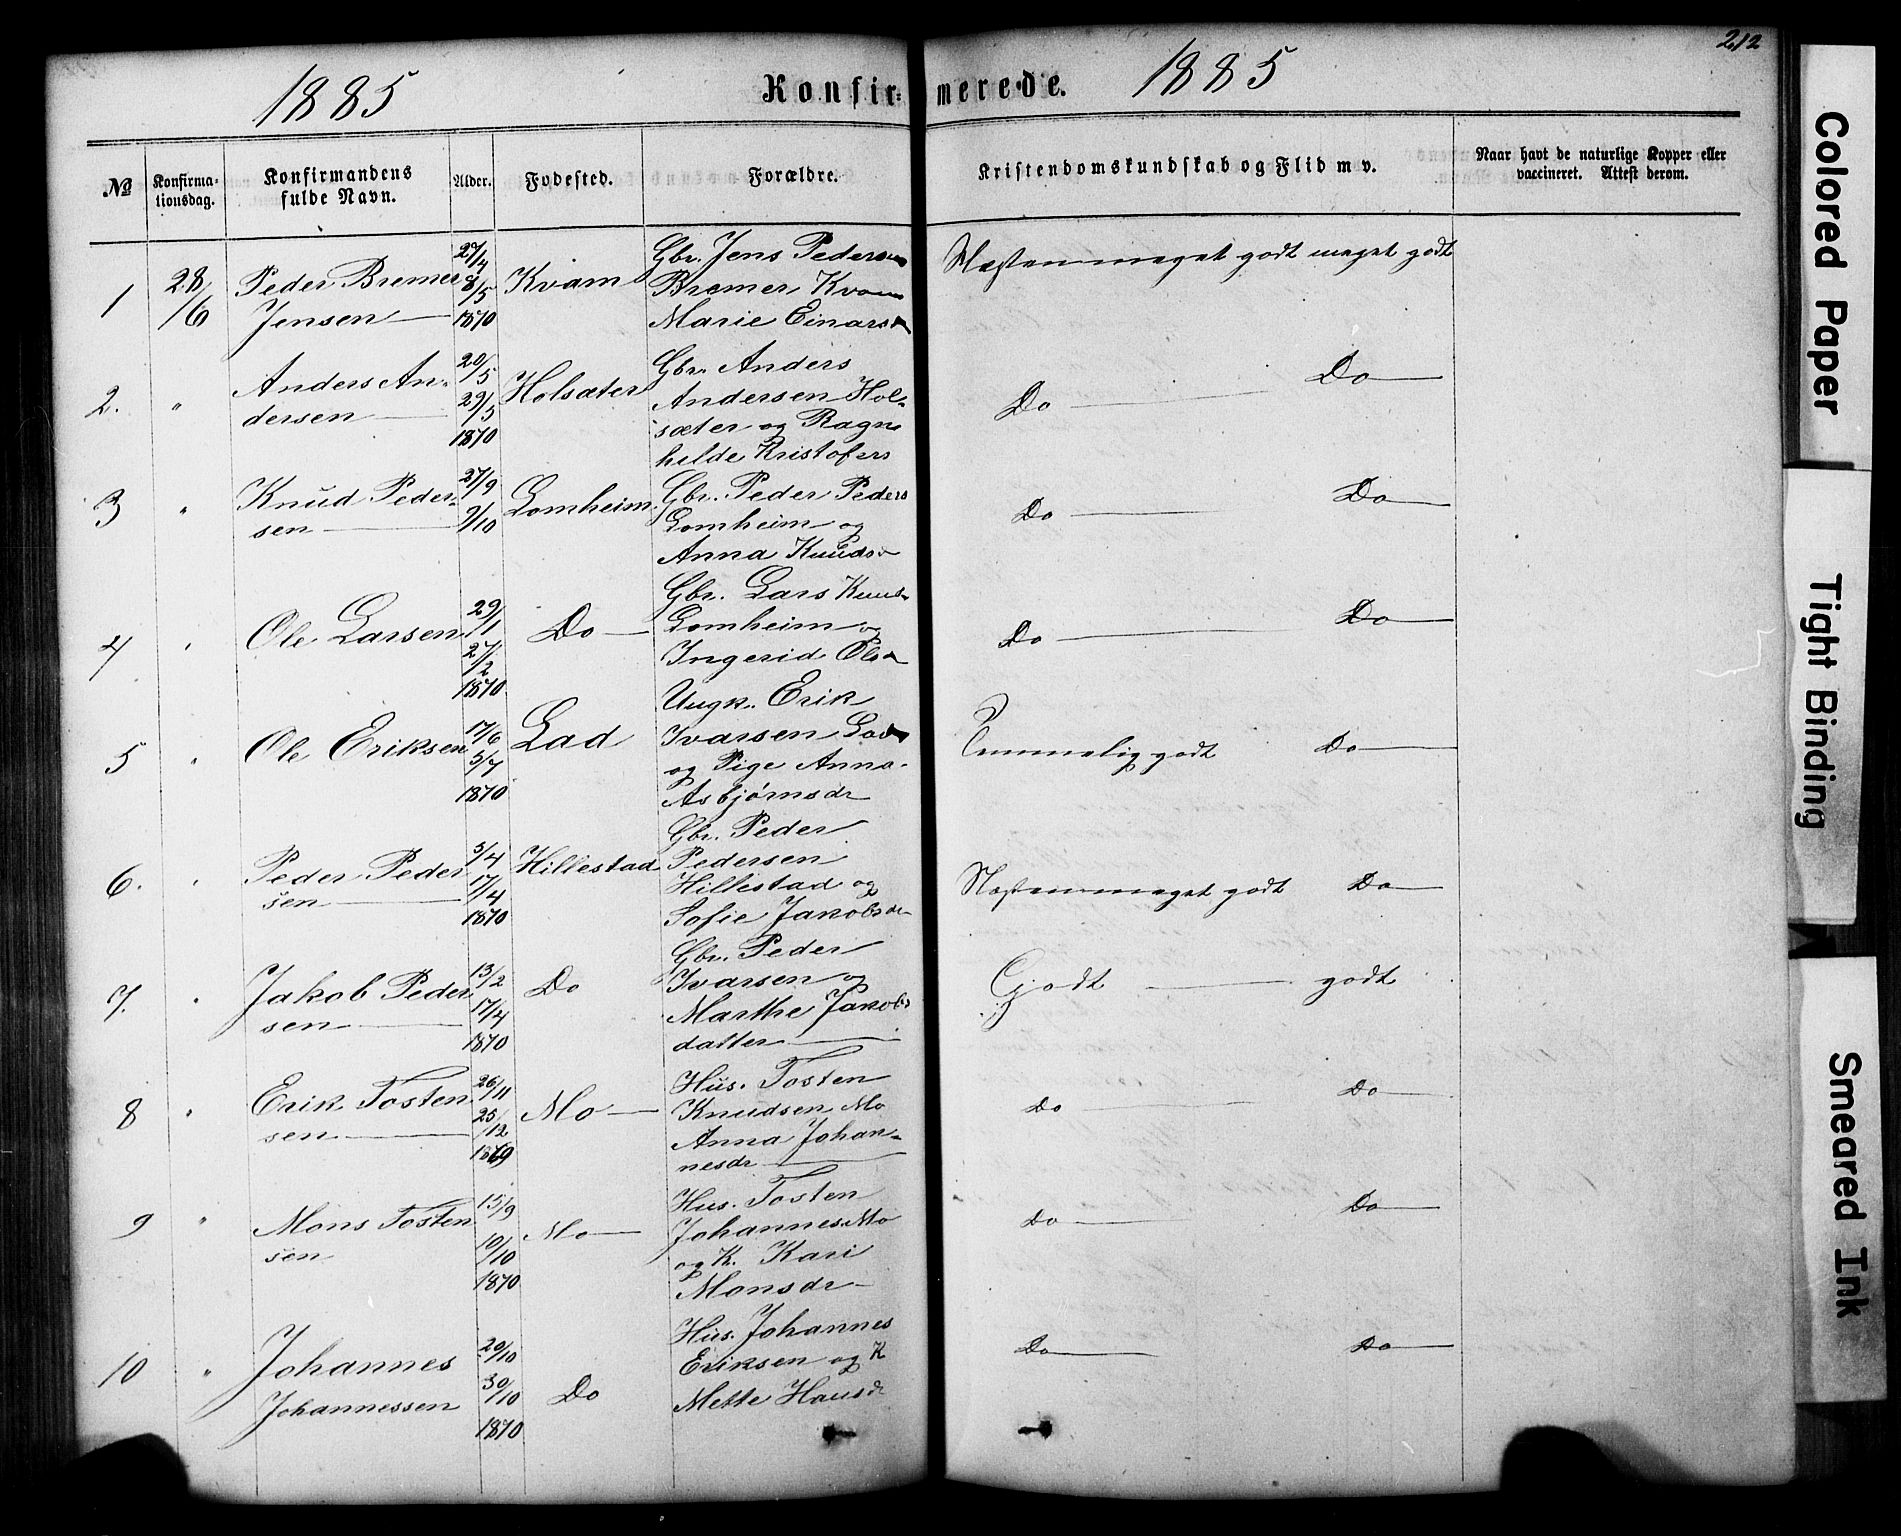 212
1885 Konfirmerede. 1885
№ Konfirmationsdag. Konfirmandens fulde Navn. Alder. Fodested. Forældre. Kristendomskundskab og Flid m v. Naar havt de naturlige Kopper eller vaccineret. Attest derom.
1 28/6 Peder Bremer Jensen 27/4 8/5 1870 Kvam Gbr. Jens Pedersen
Bremer Kvam
Marie Einarsd
Næsten meget godt meget godt
2. " Anders An-
dersen 20/5 29/5 1870 Holsæter Gbr. Anders
Andersen Hol-
sæter og Ragn
helde Kristofers
Do Do
3 " Knud Peder-
sen 27/9 9/10 Lomheim Gbr. Peder Peders
Lomheim og
Anna Knudsd
Do Do
4 " Ole Larsen 29/1 27/2 1870 Do Gbr. Lars Knuds
Lomheim og
Ingerid Olsd
Do Do
5 " Ole Eriksen 17/6 3/7 1870 Lad Ungk. Erik
Ivarsen Lad
og Pige Anna
Asbjørnsdr
Temmelig godt Do
6. " Peder Peder
sen 3/4 17/4 1870 Hillestad Gbr. Peder
Pedersen
Hillestad og
Sofie Jakobsdr
Næsten meget godt Do
7. " Jakob Peder
sen 13/2 17/4 1870 Do Gbr. Peder
Ivarsen og
Marthe Jakobs
datter
Godt godt
8 " Erik Tosten
sen 26/11 25/12 1869 Mo Hus. Tosten
Knudsen Mo
Anna Johan-
nesdr
Do Do
9 " Mons Tosten
sen 15/9 10/10 1870 Mo Hus. Tosten
Johannes Mo
og K. Kari
Monsdr
Do Do
10 " Johannes
Johannessen 20/10 30/10 1870 Do Hus. Johannes
Eriksen og K
Mette Hansd
Do Do
Colored Paper
Tight Binding
Smeared Ink